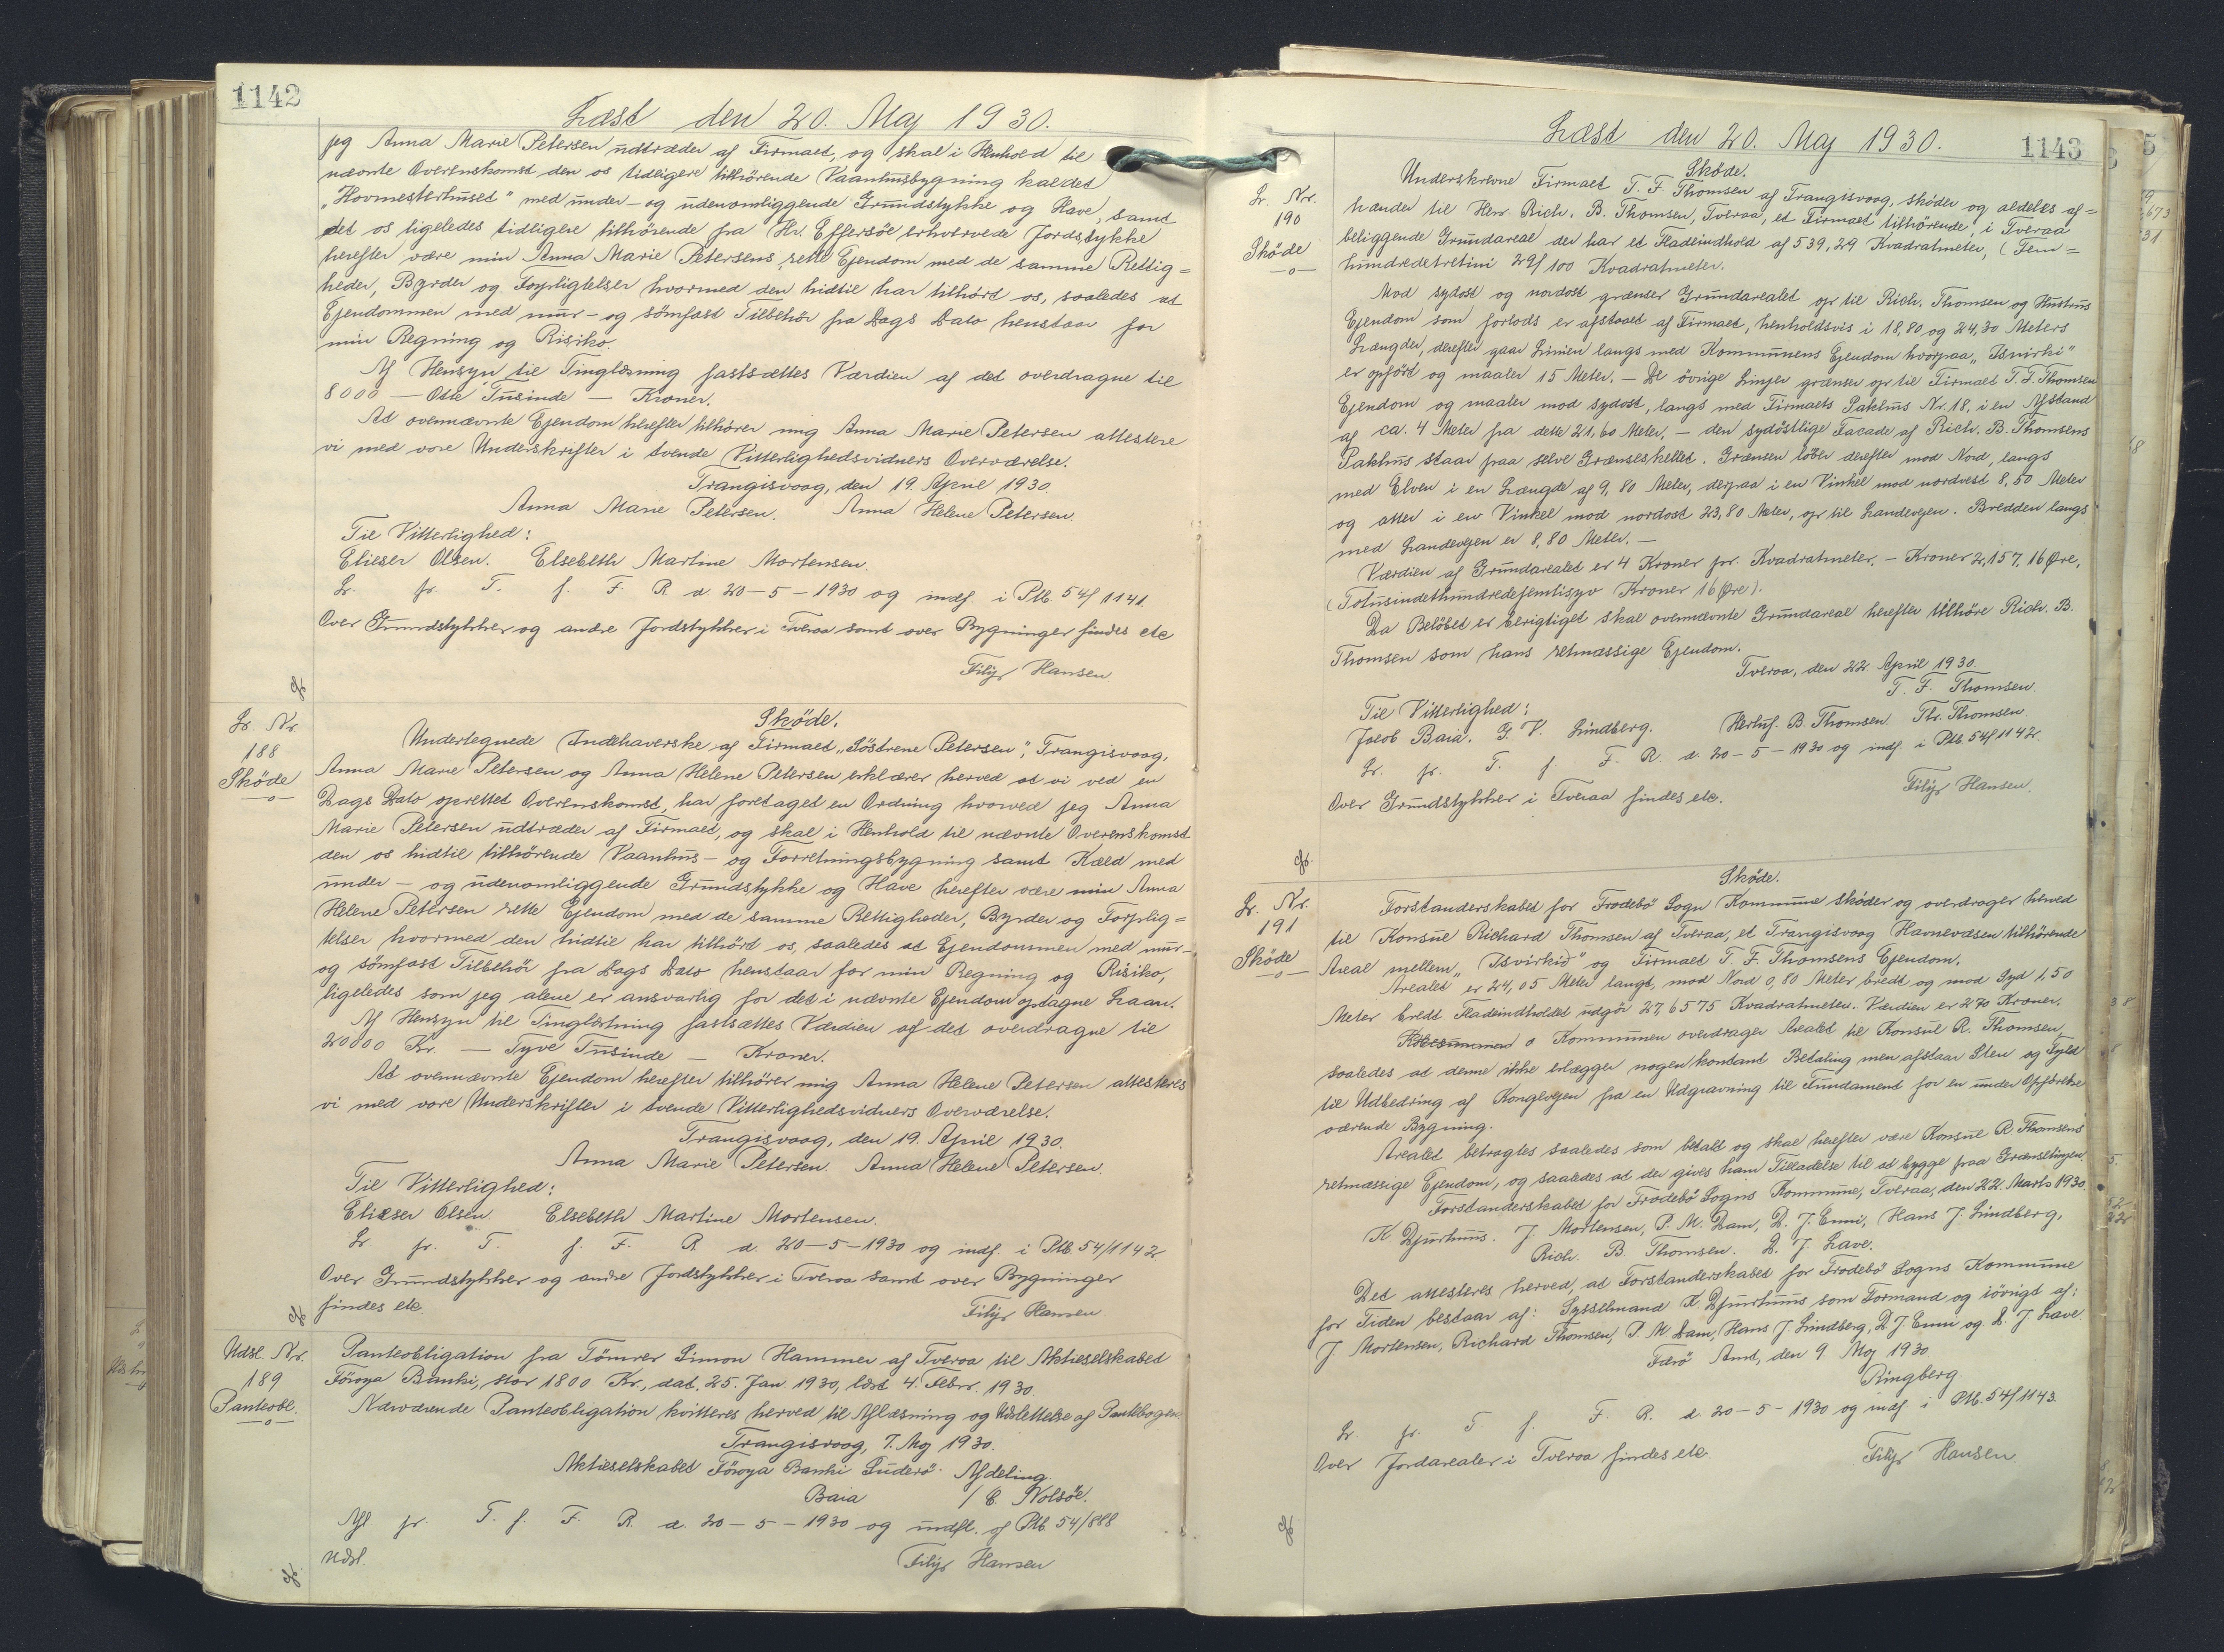 1142
Læst den 20. Maj 1930.
jeg Anna Marie Petersen udtræder af Firmaet, og skal i Henhold til
nævnte Overenskomst den os tidligere tilhørende Vaanhusbygning kaldet
"Hovmesterhuset" med under- og udenomliggende Grundstykke og Have, samt
det os ligeledes tidligere tilhörende fra Hr. Effersöe erhvervede Jordstykke
herefter være min Anna Marie Petersens rette Ejendom med de samme Rettig=
heder, Byrder og Forpligtelser hvormed den hidtil har tilhört os, saaledes at
Ejendommen med mur- og sömfast Tilbehör fra Dags Dato henstaar for
min Regning og Risiko.
Af Hensyn til Tinglæsning fastsættes Værdien af det overdragne til
8000 — Otte Tusinde — Kroner.
At ovennævnte Ejendom herefter tilhörer mig Anna Marie Petersen attestere
vi med vore Underskrifter i tvende Vitterlighedsvidners Overværelse.
Trangisvaag, den 19. April 1930
Anna Marie Petersen. Anna Helene Petersen.
Til Vitterlighed:
Elieser Olsen. Elsebeth Martine Mortensen.
Lr. fr. T. f. F. R. d. 20-5-1930 og indf. i Ptb. 54/1141.
Over Grundstykker og andre Jordstykker i Tveraa samt over Bygninger findes etc
Filip Hansen
Lr. Nr.
188
Sköde
Sköde.
Undertegnede Indehaverske af Firmaet "Söstrene Petersen", Trangisvaag,
Anna Marie Petersen og Anna Helene Petersen erklærer herved at vi ved en
Dags Dato oprettet Overenskomst, har foretaget en Ordning hvorved jeg Anna
Marie Petersen udtræder af Firmaet, og skal i Henhold til nævnte Overenskomst
den os hidtil tilhörende Vaanhus- og Forretningsbygning samt Kæld med
under- og udenomliggende Grundstykke og Have herefter være min Anna
Helene Petersen rette Ejendom med de samme Rettigheder, Byrder og Forplig=
telser hvormed den hidtil har tilhört os, saaledes at Ejendommen med mur-
og sömfast Tilbehör fra Dags Dato henstaar for min Regning og Risiko,
ligeledes som jeg alene er ansvarlig for det i nævnte Ejendom optagne Laan.
Af Hensyn til Tinglæsning fastsættes Værdien af det overdragne til
20000 Kr. — Tyve Tusinde — Kroner.
At ovennævnte Ejendom herefter tilhörer mig Anna Helene Petersen attesteres
vi med vore Underskrifter i tvende Vitterlighedsvidners Overværelse.
Trangisvaag, den 19. April 1930.
Anna Marie Petersen. Anna Helene Petersen.
Til Vitterlighed:
Elieser Olsen. Elsebeth Martine Mortensen.
Lr. fr. T. f. F. R. d. 20-5-1930 og indf. i Ptb. 54/1142
Over Grundstykker og andre Jordstykker i Tveraa samt over Bygninger
findes etc.
Filip Hansen
Udsl. Nr.
189
Panteobl.
Panteobligation fra Tömrer Simon Hammer af Tveraa til Aktieselskabet
Föroya Banki, stor 1800 Kr., dat. 25. Jan. 1930, læst 4. Febr. 1930.
Nærværende Panteobligation kvitteres herved til Aflæsning og Udslettelse af Pantebogen.
Trangisvaag, 7. Maj 1930.
Aktieselskabet Föroya Banki Suderö Afdeling
Baia / C. Nolsöe.
Afl fr. T. f. F. R. d. 20-5-1930 og indfl. af Ptb 54/888
Udsl.
Filip Hansen
1143
Læst den 20. Maj 1930.
Lr. Nr.
190
Sköde
Sköde.
Underskrevne Firmaet T. F. Thomsen af Trangisvaag, sköder og aldeles af=
hænder til Herr. Rich. B. Thomsen, Tveraa, et Firmaet tilhörende, i Tveraa
beliggende Grundareal der har et Fladeindhold af 539,29 Kvadratmeter, (Fem=
hundredetretini 29/100 Kvadratmeter.
Mod sydost og nordost grænser Grundarealet op til Rich. Thomsen og Hustrus
Ejendom som forlods er afstaaet af Firmaet, henholdsvis i 18,80 og 24,30 Meters
Længder, derefter gaar Linien langs med Kommunens Ejendom hvorpaa "Isvirki"
er opfört og maaler 15 Meter. — De övrige Linjer grænser op til Firmaet T. F. Thomsen
Ejendom og maaler mod sydost, langs med Firmaets Pakhus Nr. 18, i en Afstand
af ca. 4 Meter fra dette 21,60 Meter, — den sydöstlige Facade af Rich. B. Thomsens
Pakhus staar paa selve Grænseskellet. Grænsen löber derefter mod Nord, langs
med Elven i en Længde af 9,80 Meter, derpaa i en Vinkel mod nordvest 8,50 Meter
og atter i en Vinkel mod nordost 23,80 Meter, op til Landevejen. Bredden langs
med Landevejen er 8,80 Meter. —
Værdien af Grundarealet er 4 Kroner pr. Kvadratmeter. — Kroner 2,157,16 Øre,
(Totusindethundredefemtisyv Kroner 16 Øre).
Da Belöbet er berigtiget skal ovennævnte Grundareal herefter tilhöre Rich. B.
Thomsen som hans retmæssige Ejendom.
Tveraa, den 22 April 1930.
T. F. Thomsen.
Til Vitterlighed:
Jacob Baia. G. V. Lindberg. Herluf. B. Thomsen. Th. Thomsen
Lr. fr. T. f. F. R. d. 20-5-1930 og indf. i Ptb 54/1142.
Over Grundstykker i Tveraa findes etc.
Filip Hansen.
Lr. Nr.
191
Sköde
Sköde.
Forstanderskabet for Frodebö Sogn Kommune sköder og overdrager herved
til Konsul Richard Thomsen af Tveraa, et Trangisvaag Havnevæsen tilhörende
Areal mellem "Isvirkid" og Firmaet T. F. Thomsens Ejendom.
Arealet er 24,05 Meter langt, mod Nord 0,80 Meter bredt og mod Syd 1,50
Meter bredt Fladeindholdet udgör 27,6575 Kvadratmeter. Værdien er 270 Kroner.
Kommunen overdrager Arealet til Konsul R. Thomsen,
saaledes at denne ikke erlægger nogen kontant Betaling men afstaar Sten og Fyld
til Udbedring af Kongevejen fra en Udgravning til Fundament for en under Opförelse
værende Bygning.
Arealet betragtes saaledes som betalt og skal herefter være Konsul R. Thomsens
retmæssige Ejendom, og saaledes at der gives ham Tilladelse til at bygge paa Grænselinjen.
Forstanderskabet for Frodebö Sogns Kommune, Tveraa, den 22. Marts 1930.
K. Djurhuus. J. Mortensen, P. M. Dam, D. J. Enni, Hans J. Lindberg,
Rich. B. Thomsen. D. J. Lave.
Det attesteres herved, at Forstanderskabet for Frodebö Sogns Kommune
for Tiden bestaar af: Sysselmand K. Djurhuus som Formand og iövrigt af:
J Mortensen, Richard Thomsen, P. M Dam, Hans J. Lindberg, D J Enni og D. J Lave
Færö Amt, den 9 Maj 1930
Ringberg.
Lr. fr. T f. F. R. d. 20-5-1930 og indf. i Ptb. 54/1143.
Over Jordarealer i Tveraa findes etc.
Filip Hansen